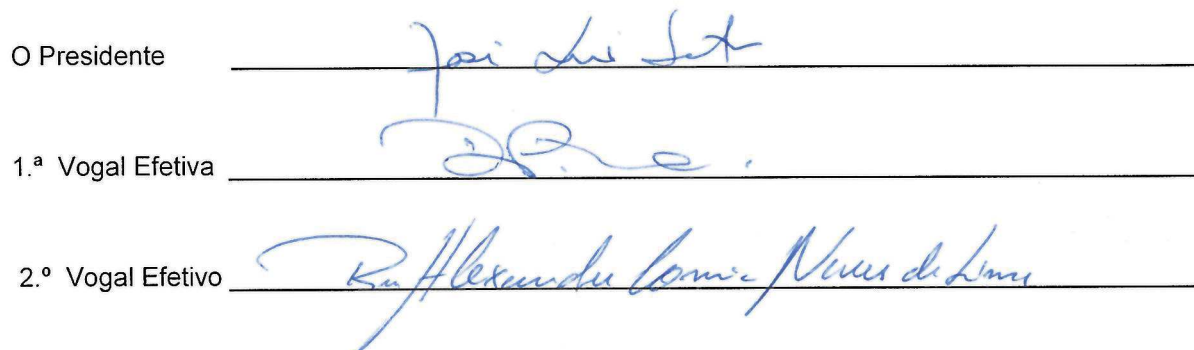 O Presidente José Luis
1.ª Vogal Efetiva
2.º Vogal Efetivo Rui Alexandre Correia Neves de Lima